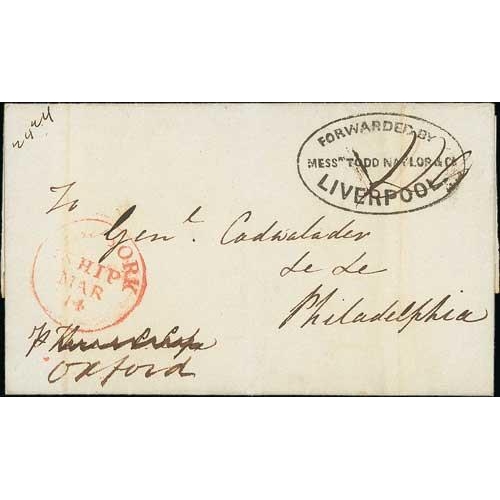 FORWARDED BY
MESSRS TODD NAYLOR & Co
LIVERPOOL.
To
Genl. Cadwalader
&c &c
Philadelphia
YORK
SHIP
MAR
14
Oxford